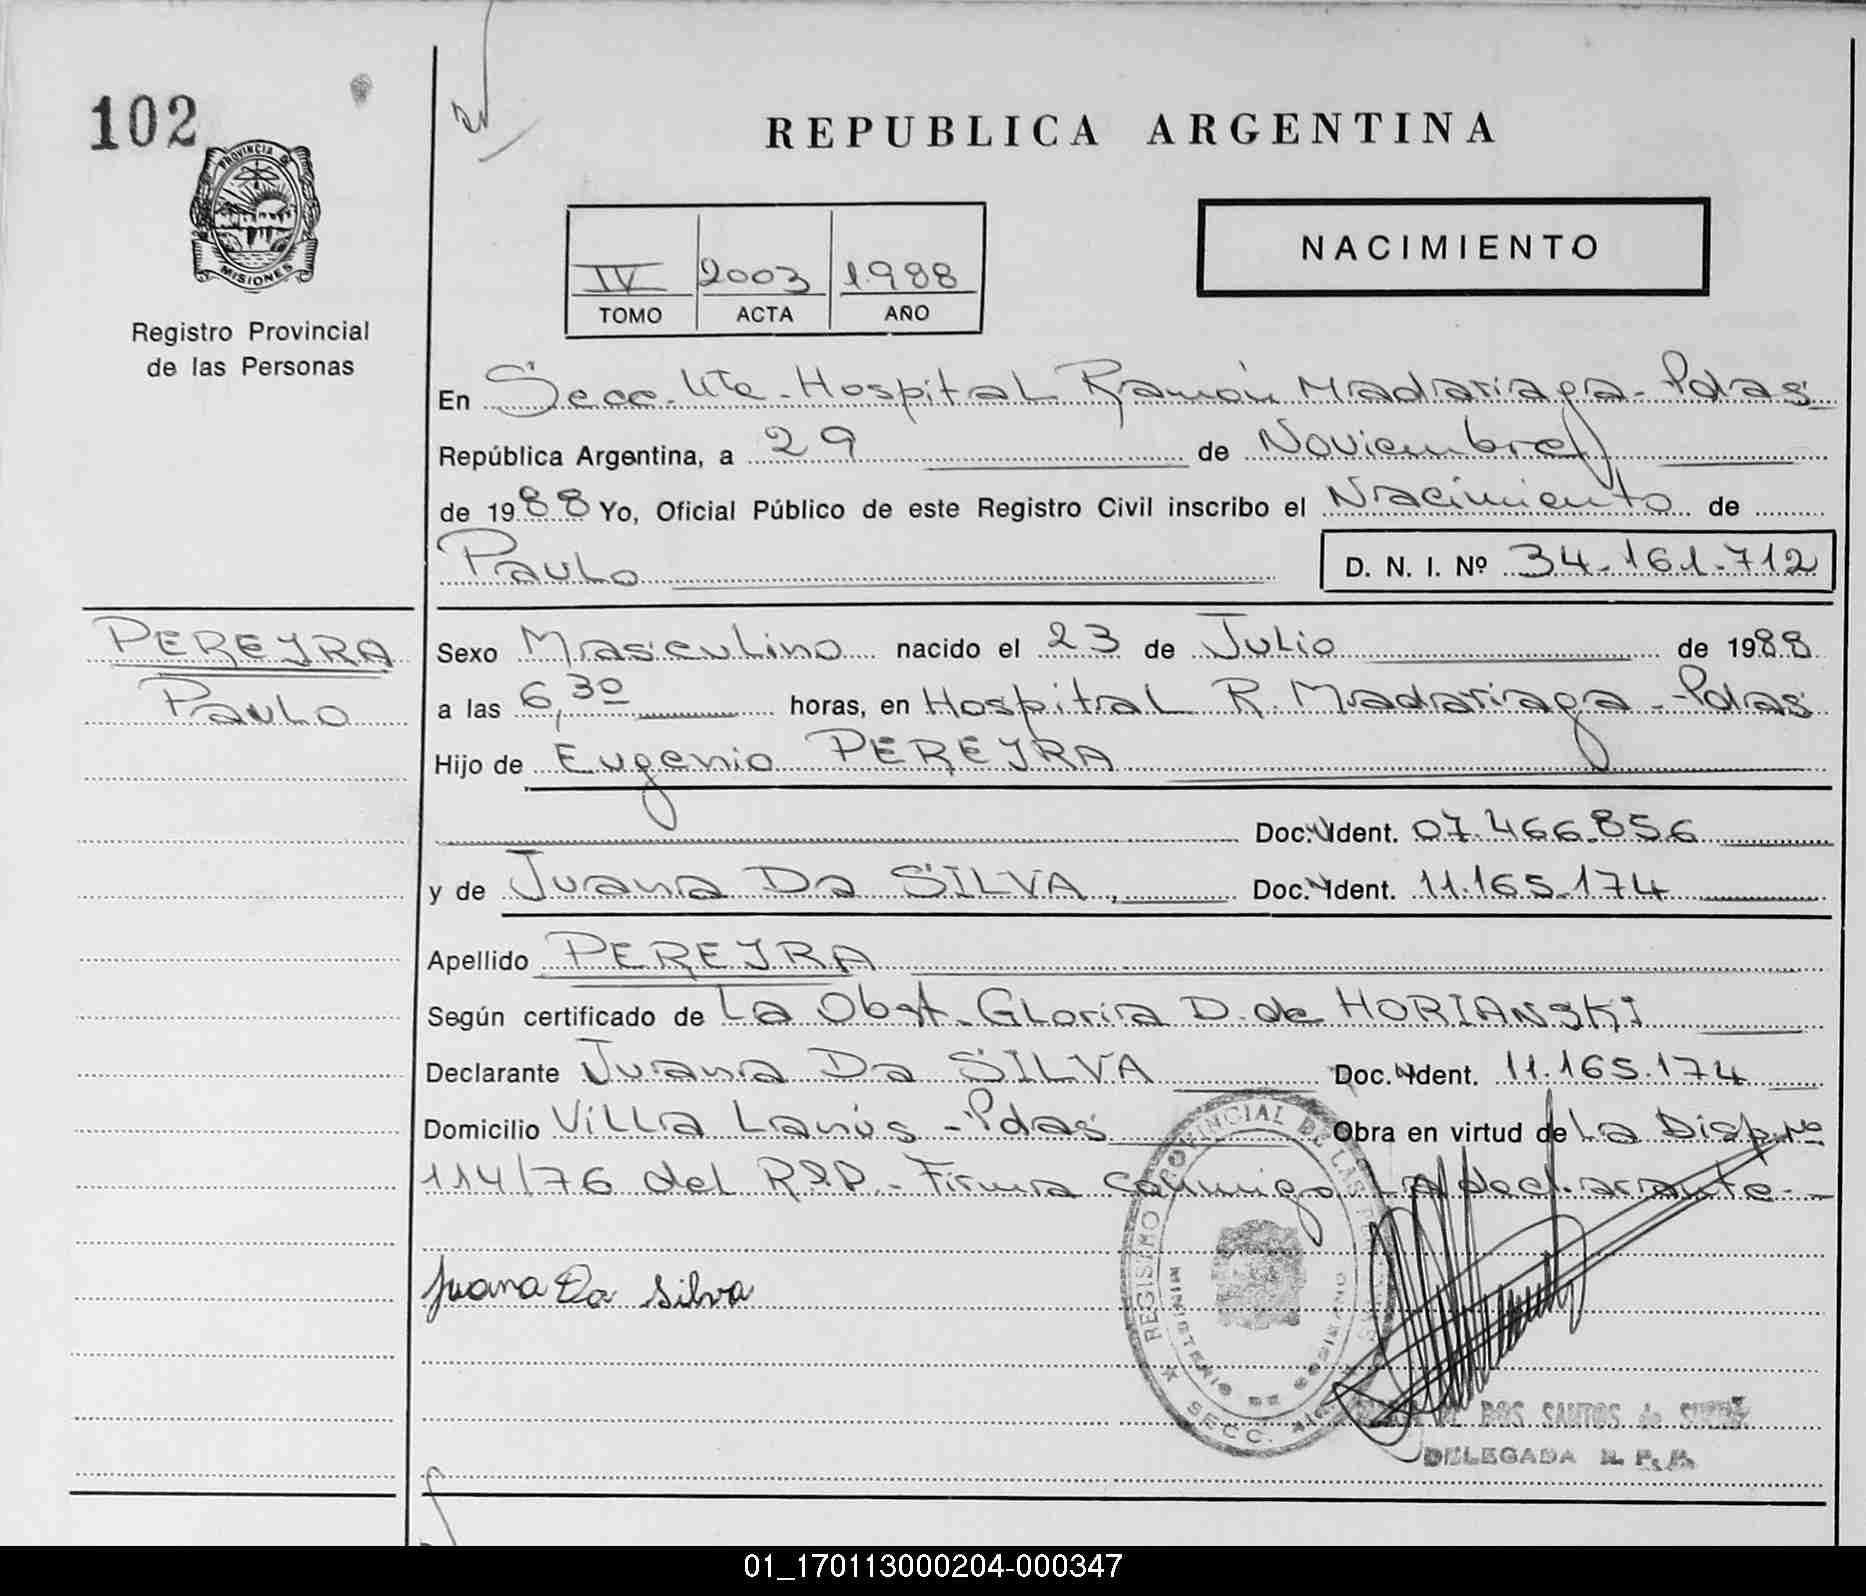 102
PROVINCIA DE
MISIONES
Registro Provincial
de las Personas
REPUBLICA ARGENTINA
IV 2003 1988
TOMO ACTA AÑO
NACIMIENTO
En Secc. Hospital Ramón Madariaga - Pdas
República Argentina, a 29 de Noviembre
de 1988 Yo, Oficial Público de este Registro Civil inscribo el Nacimiento de
Paulo D. N. I. Nº 34.161.712
PEREYRA
Paulo
Sexo Masculino nacido el 23 de Julio de 1988
a las 6,30 horas, en Hospital R. Madariaga - Pdas
Hijo de Eugenio PEREYRA
Doc. Ident. 07.466.856
y de Juana Da SILVA, Doc. Ident. 11.165.174
Apellido PEREYRA
Según certificado de La Obst. Gloria D. de HORIANSKI
Declarante Juana Da SILVA Doc. Ident. 11.165.174
Domicilio Villa Lanús - Pdas Obra en virtud de La Disp. Nº
114/76 del R.P.P. - Firma conmigo La declarante -
Juana Da Silva
REGISTRO PROVINCIAL DE LAS
MINISTERIO DE GOBIERNO
SECC.
DOS SANTOS de
DELEGADA R. P. P.
01_170113000204-000347